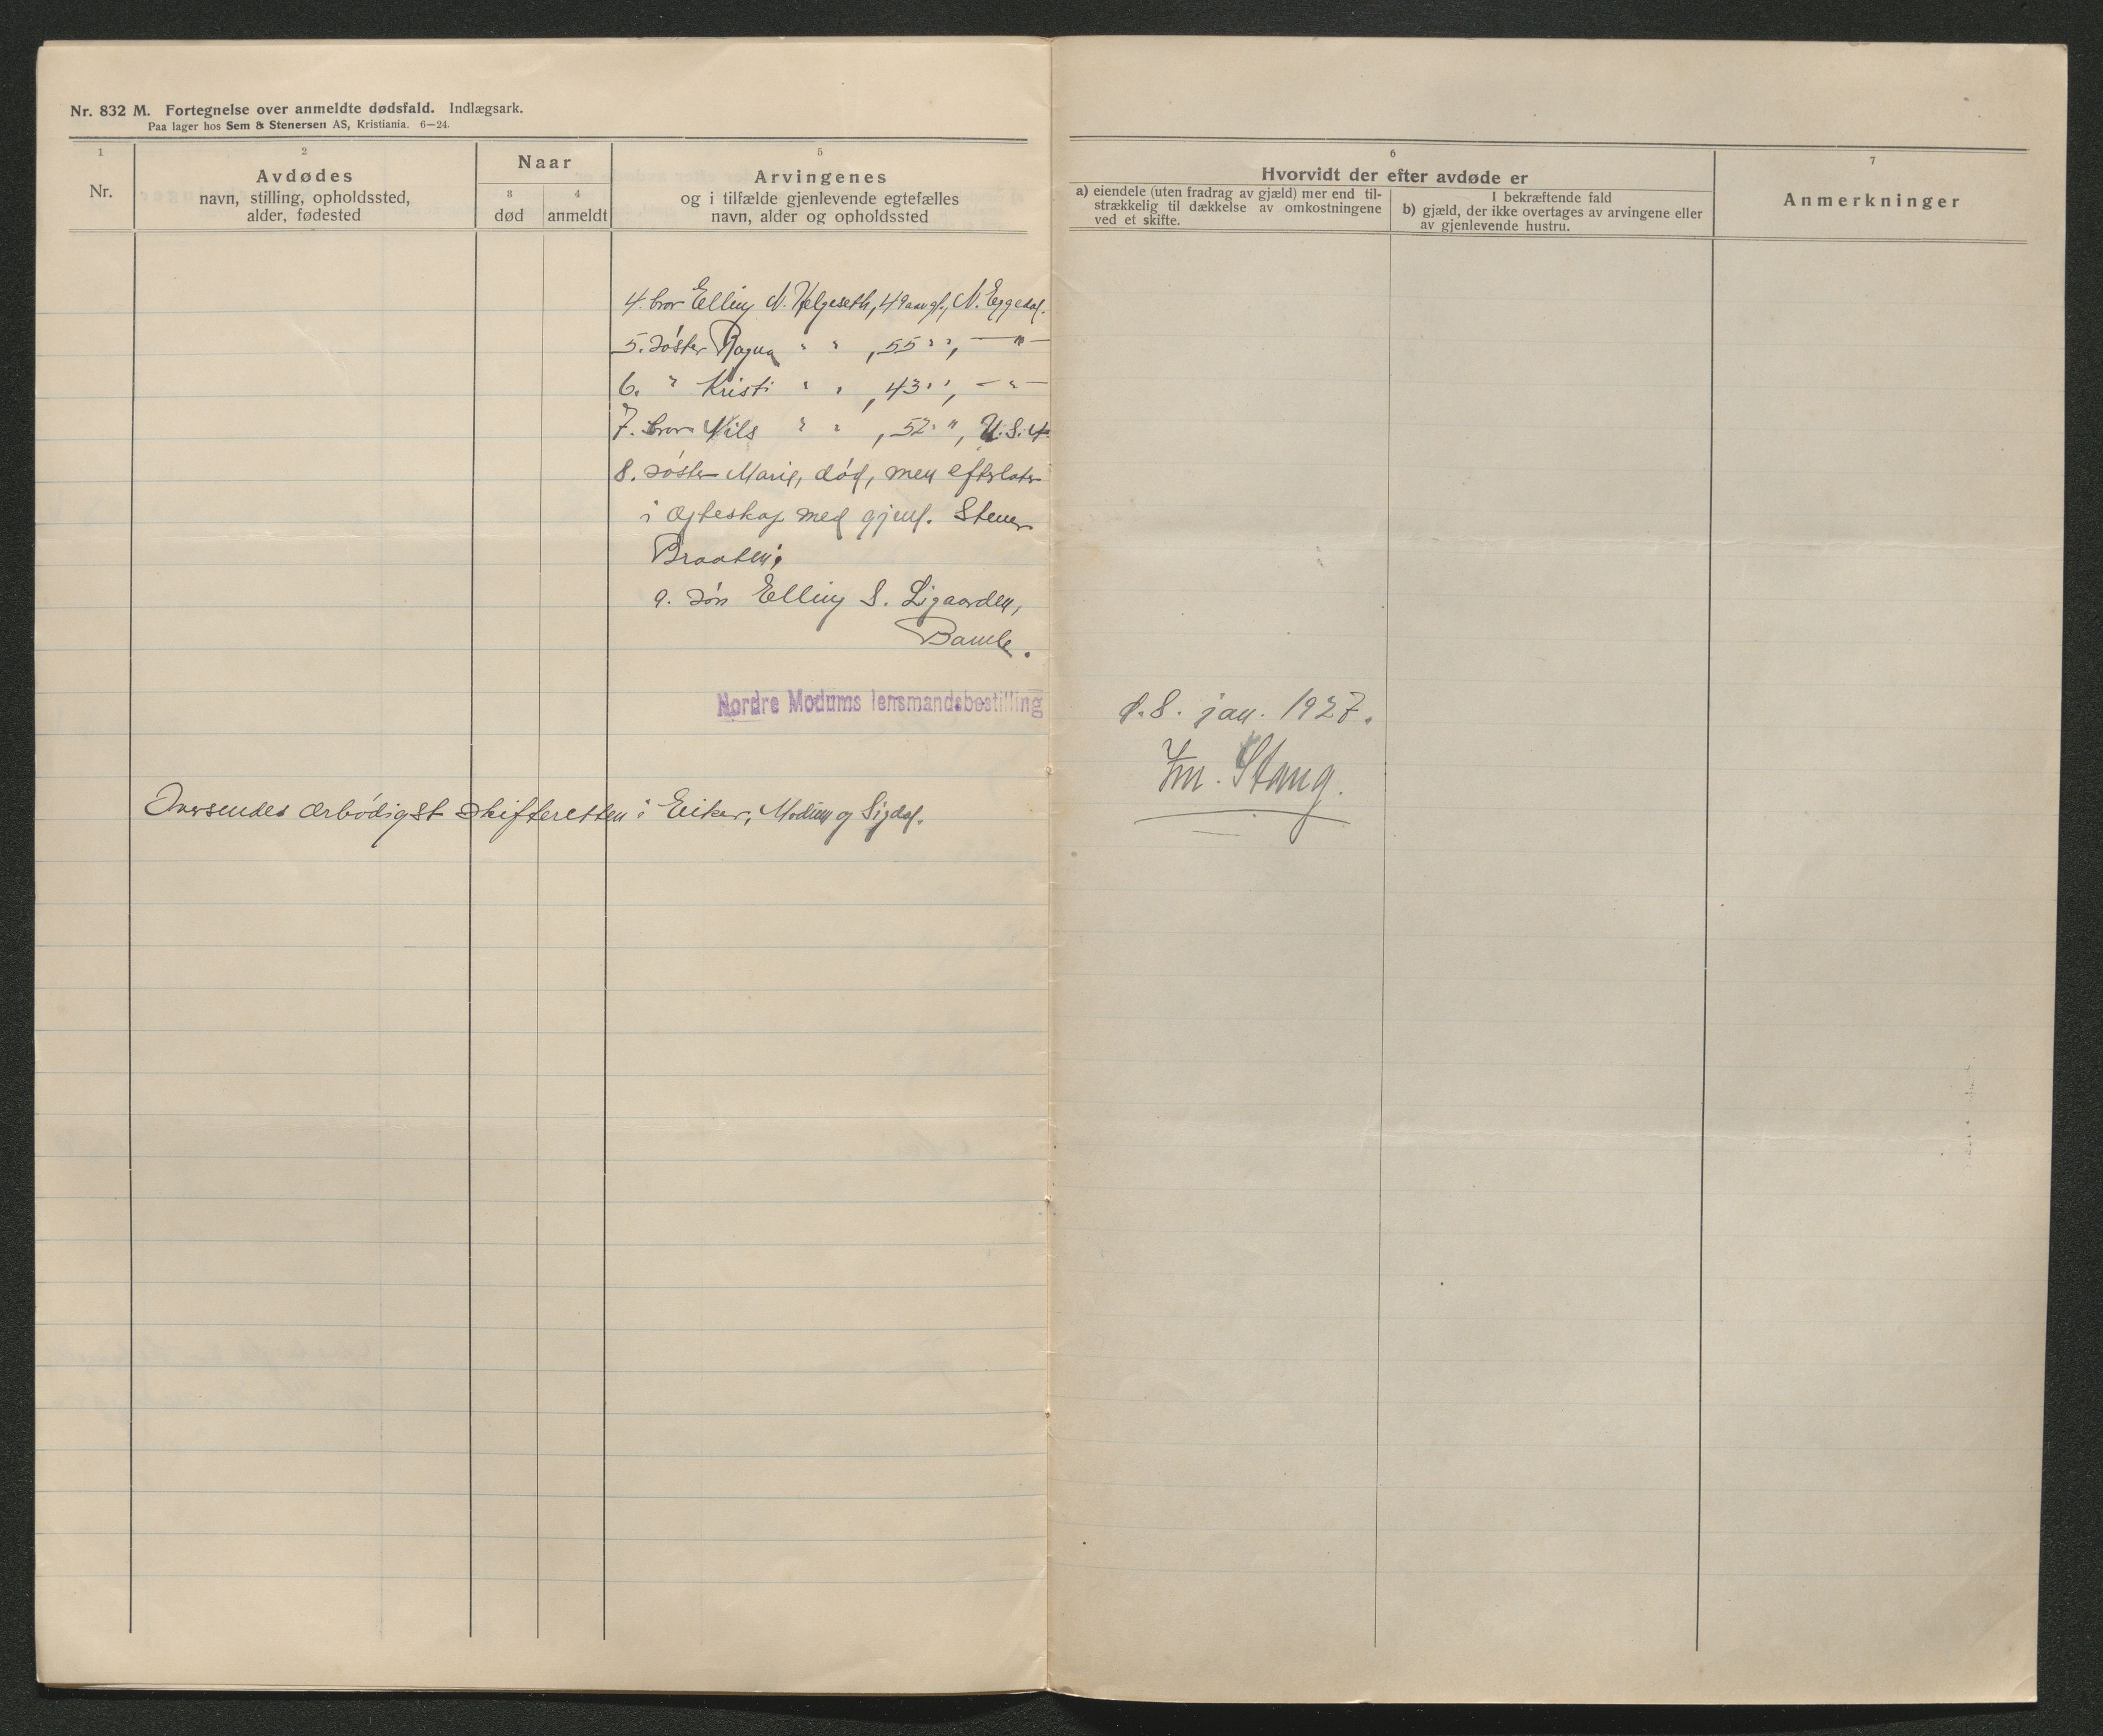 Nr. 832 M. Fortegnelse over anmeldte dødsfald. Indlægsark.
Paa lager hos Sem & Stenersen AS, Kristiania. 6—24.
1
Nr.
2
Avdødes
navn, stilling, opholdssted,
alder, fødested
Naar
3
død
4
anmeldt
5
Arvingenes
og i tilfælde gjenlevende egtefælles
navn, alder og opholdssted
6
Hvorvidt der efter avdøde er
a) eiendele (uten fradrag av gjæld) mer end til-
strækkelig til dækkelse av omkostningene
ved et skifte.
I bekræftende fald
b) gjæld, der ikke overtages av arvingene eller
av gjenlevende hustru.
7
Anmerkninger
4. bror Elling N. Helgeseth, 49 aar gl., N. Eggedal.
5. søster Ragna " " , 55 " ", — " —
6. " Kristi " " , 43 " ", — " —
7. bror Nils " " , 52 " ", U.S.A.
8. søster Marie, død, men efterlater
i egteskap med gjenl. Stener
Braaten:
a. søn Elling S. Ligaarden,
Bamle.
Nordre Modums lensmandsbestilling
d. 8. jan. 1927.
Stang.
Oversendes ærbødigst skifteretten i Eiker, Modum og Sigdal.